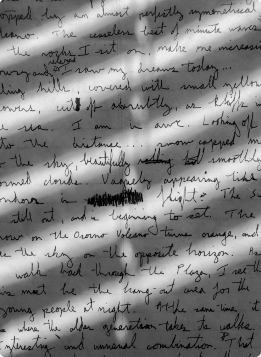 opped day an almost perfectly symmetrical
The ceaseless beat of minute waves
the rocks I sit on, make me increasi
and I saw my dreams today...
hills covered with small yellow
off abruptly, as cliffs
sea. I am in awe. Looking off
to the distance... snow capped m
to the sky, beautifully smoothly
ormed clouds. Vaguely appearing like
in flight? The Su
still out, and is beginning to set. The
now on the Osorno Volcano turns orange, and
the sky on the opposite horizon. As
walk back through the Plaza, I see th
is must be the hang-out area for the
young people at night. At the same time, it
where the older generation takes walks
interesting and unusual combination. That